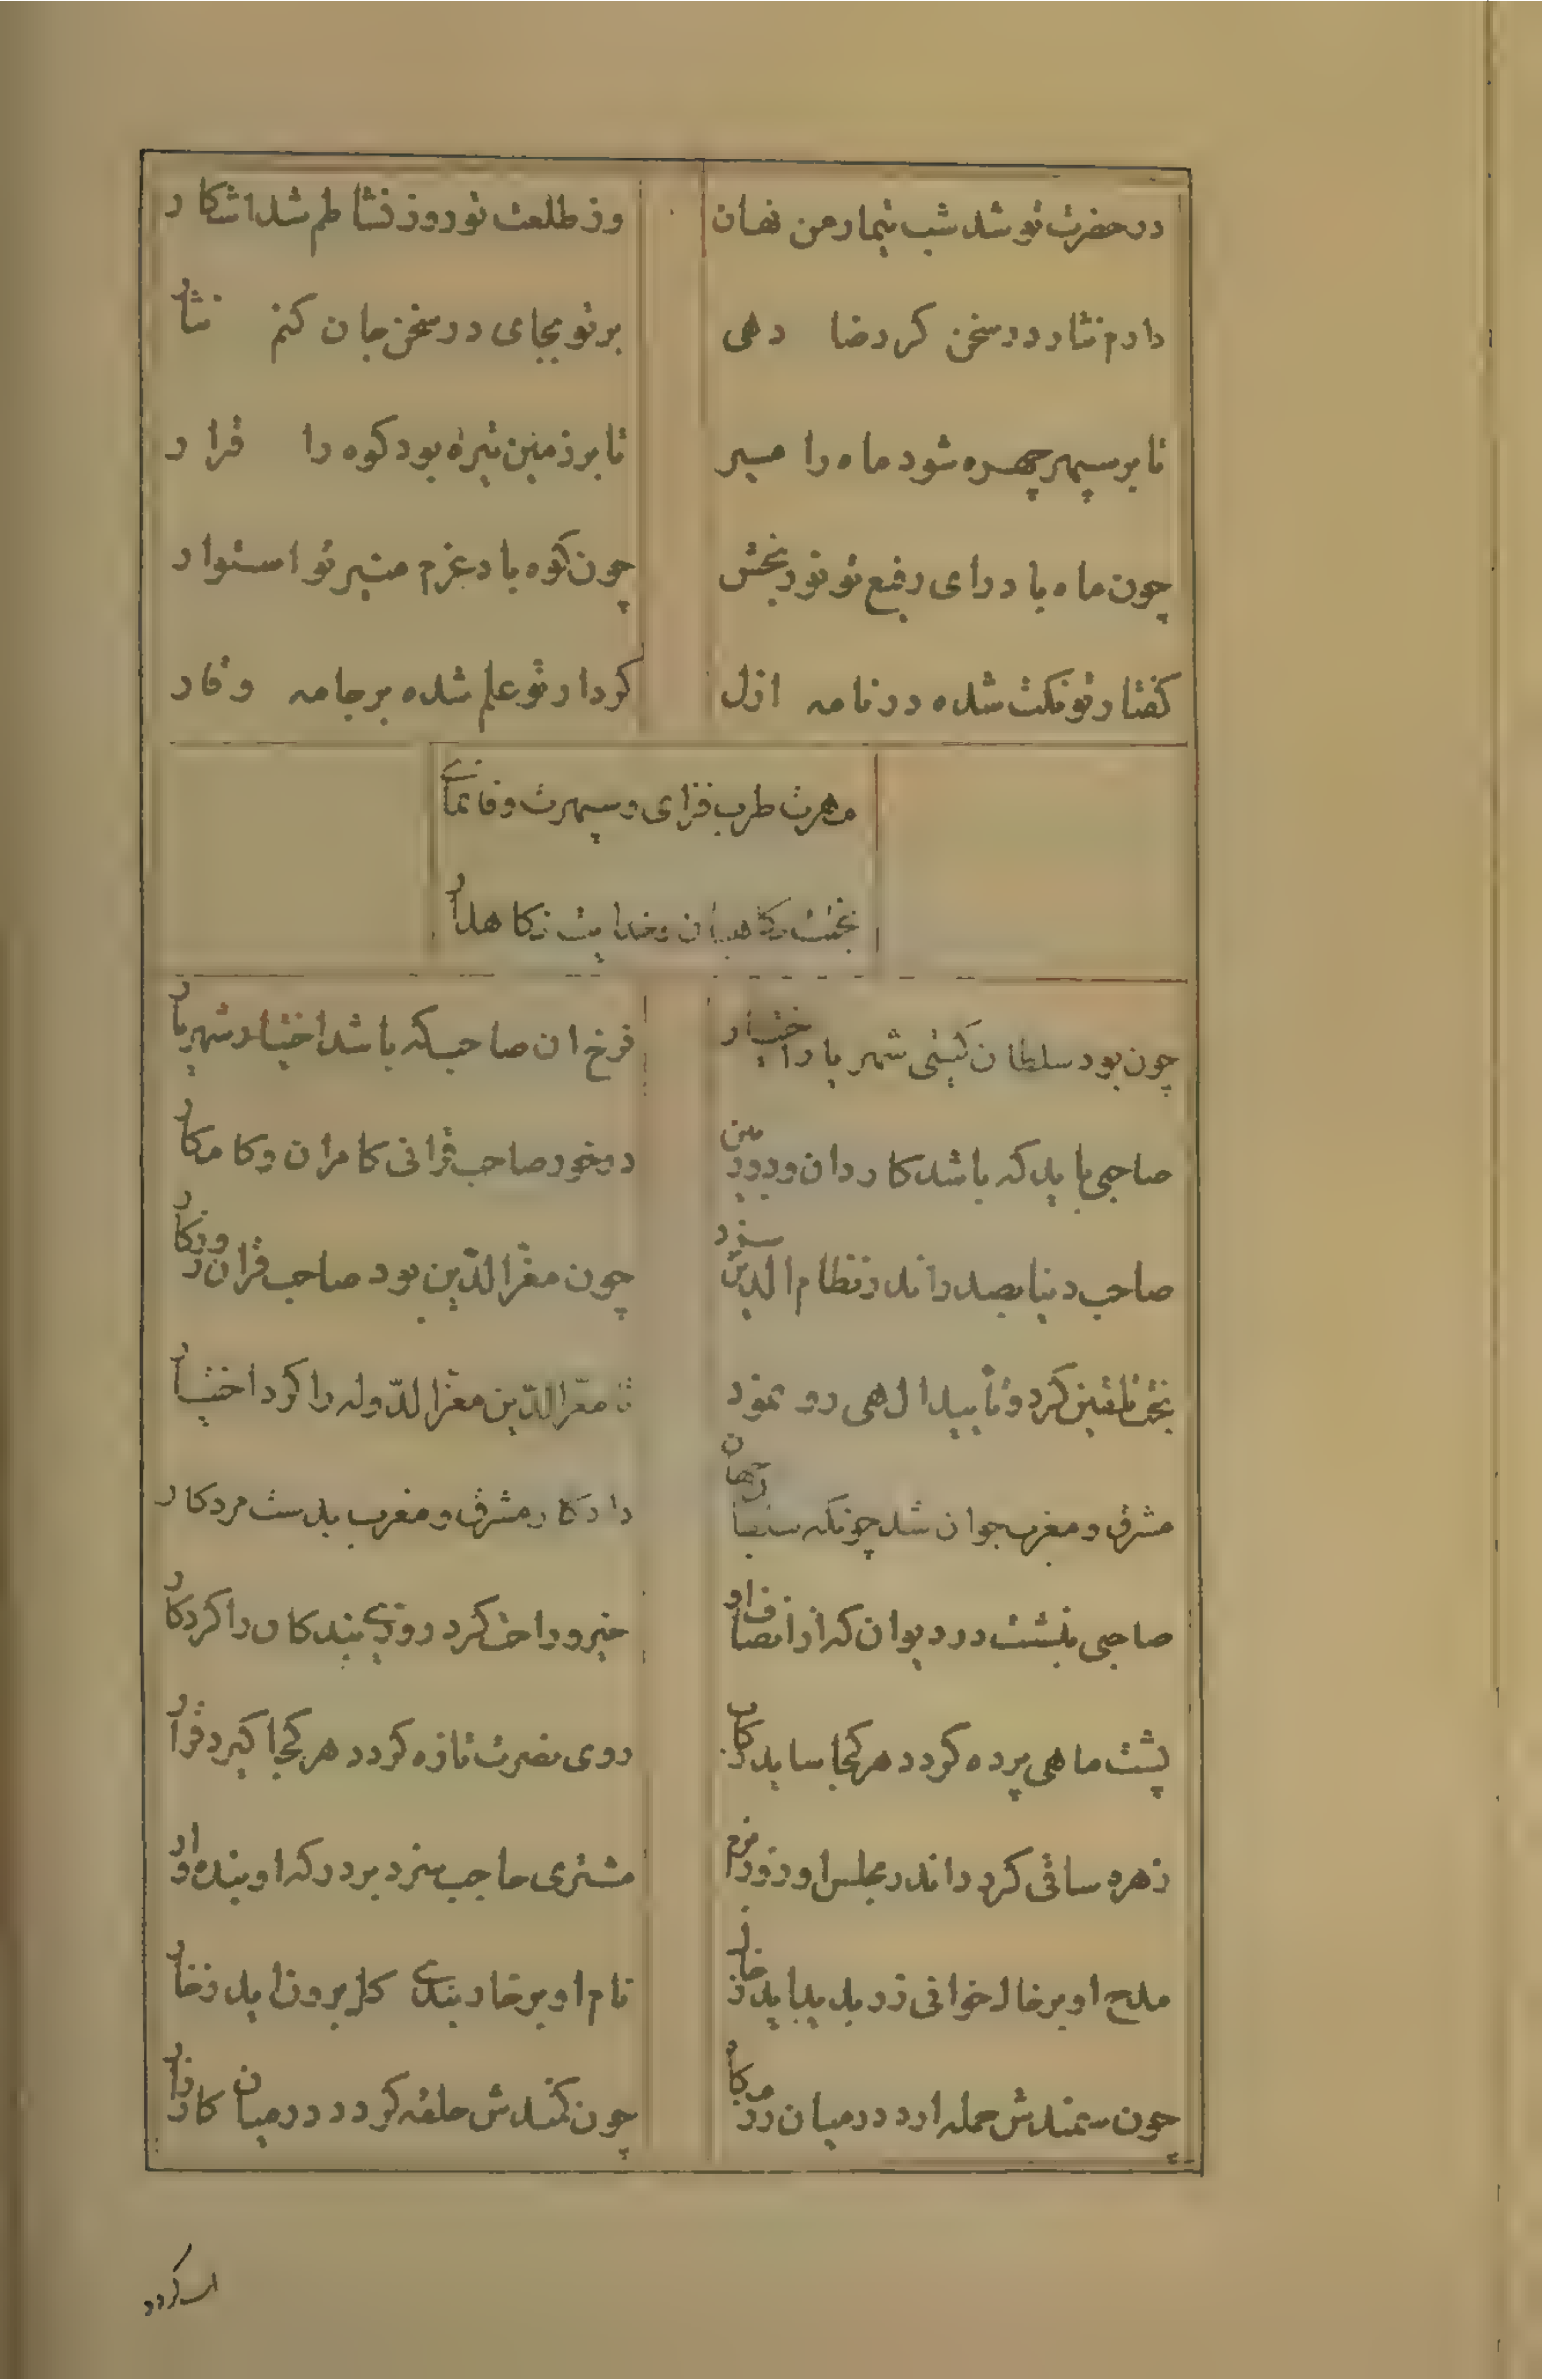 در حضرت تو شد شب تیمار من نهان وز طلعت تو روز نشاطم شد اشکار
دارم نثار در سخن کر رضا دهی بر تو بجای در سخن جان کنم نثار
تا بر سپهر چهره شود ماه را مسیر تا بر زمین تیره بود کوه را قرار
چون ماه باد رای رفیع تو نوربخش چون کوه باد عزم متیر تو استوار
کفتار تو نکت شده در نامه ازل کردار تو علم شده بر جامه وقار
مهرت طرب فزای و سپهرت وفا نمای
بختت نکاهبان و خدایت نکاهدار
چون بود سلطان کیتی شهریار اختیار فرخ ان صاحب که باشد اختیار شهریار
صاحبی باید که باشد کاردان و دوربین درخور صاحب قرانی کامران و کامکار
صاحب دنیا بصدر اندر نظام الدین سزد چون معزالدین بود صاحب قران روزکار
بخت تلقین کرد و تأیید الهی رو نمود تا معزالدین معزالدوله را کرد اختیار
مشرق و مغرب جوان شد چونکه سلطان جهان داد کار مشرق و مغرب بدست مرد کار
صاحبی بنشست در دیوان که از انصاف او خیر و راحت کرد روزی بندکان را کردکار
پشت ماهی پرده کردد هر کجا ساید رکاب روی نصرت تازه کردد هر کجا کیرد قرار
زهره ساقی کردد اندر مجلس او روز بزم مشتری حاجب سزد بر درکه او بنده وار
مدح او بر خار خوانی زر بدید اید ز خار نام او بر خار بندی کل برون اید ز خار
چون سمندش حمله ارد در میان رزمکاه چون کمندش حلقه کردد در میان کارزار
کردد